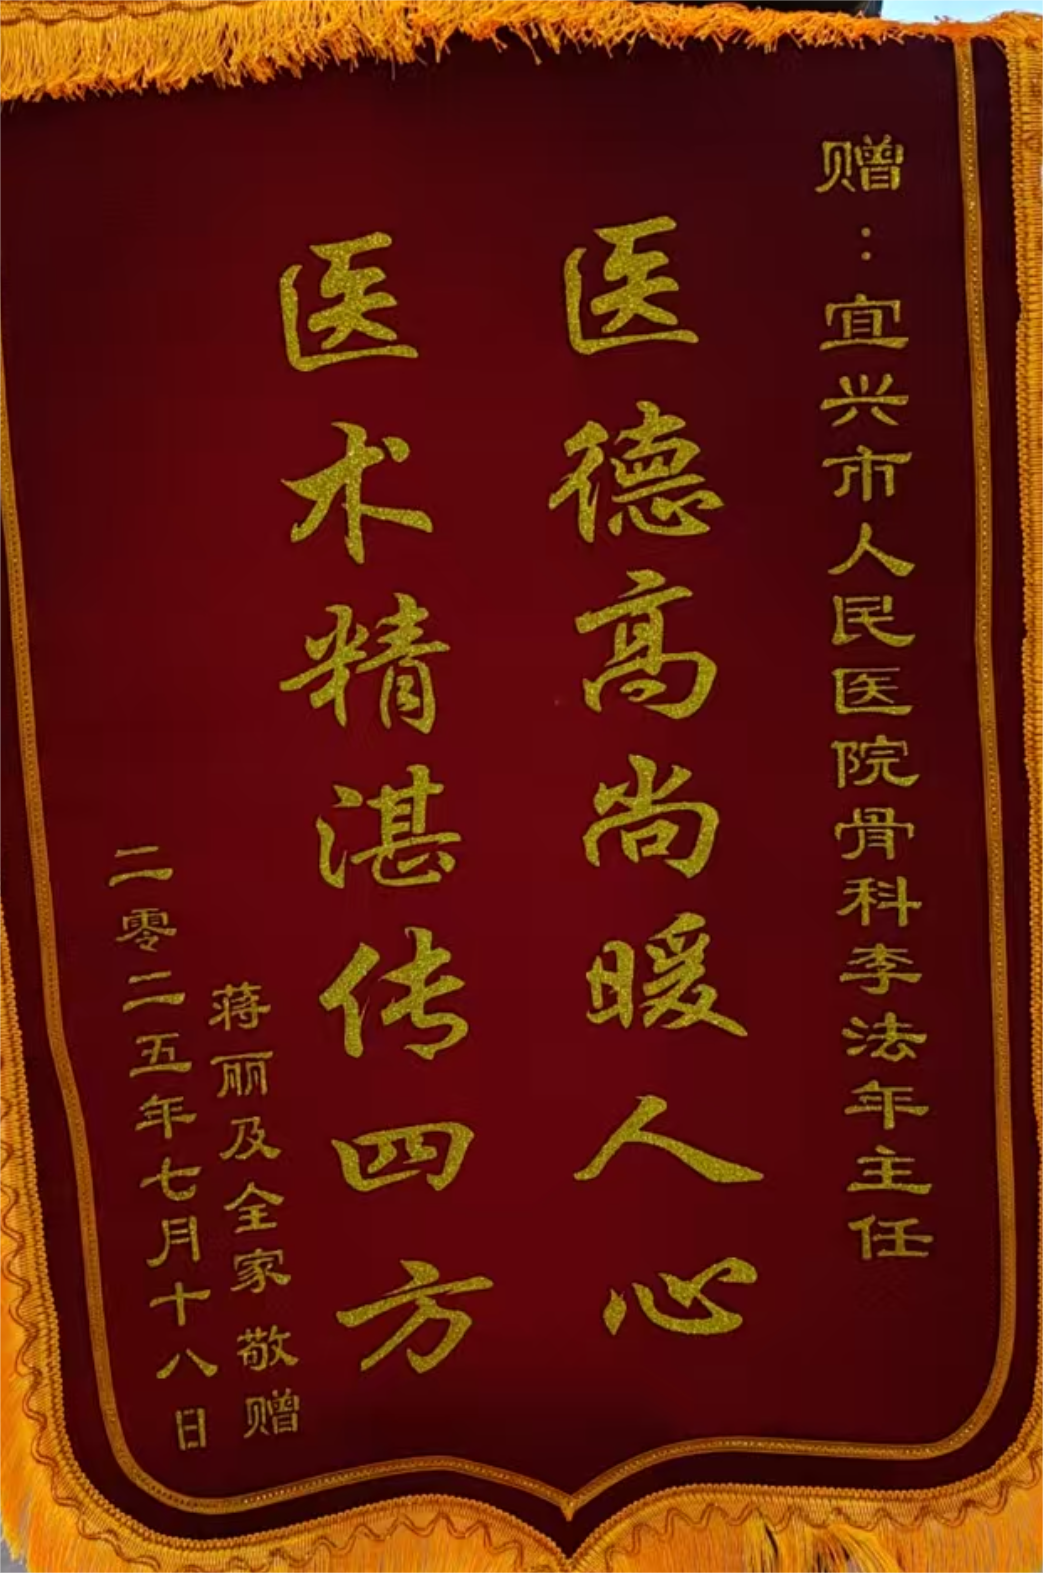 赠：宜兴市人民医院骨科李法年主任
医德高尚暖人心
医术精湛传四方
蒋丽及全家 敬赠
二零二五年七月十八日